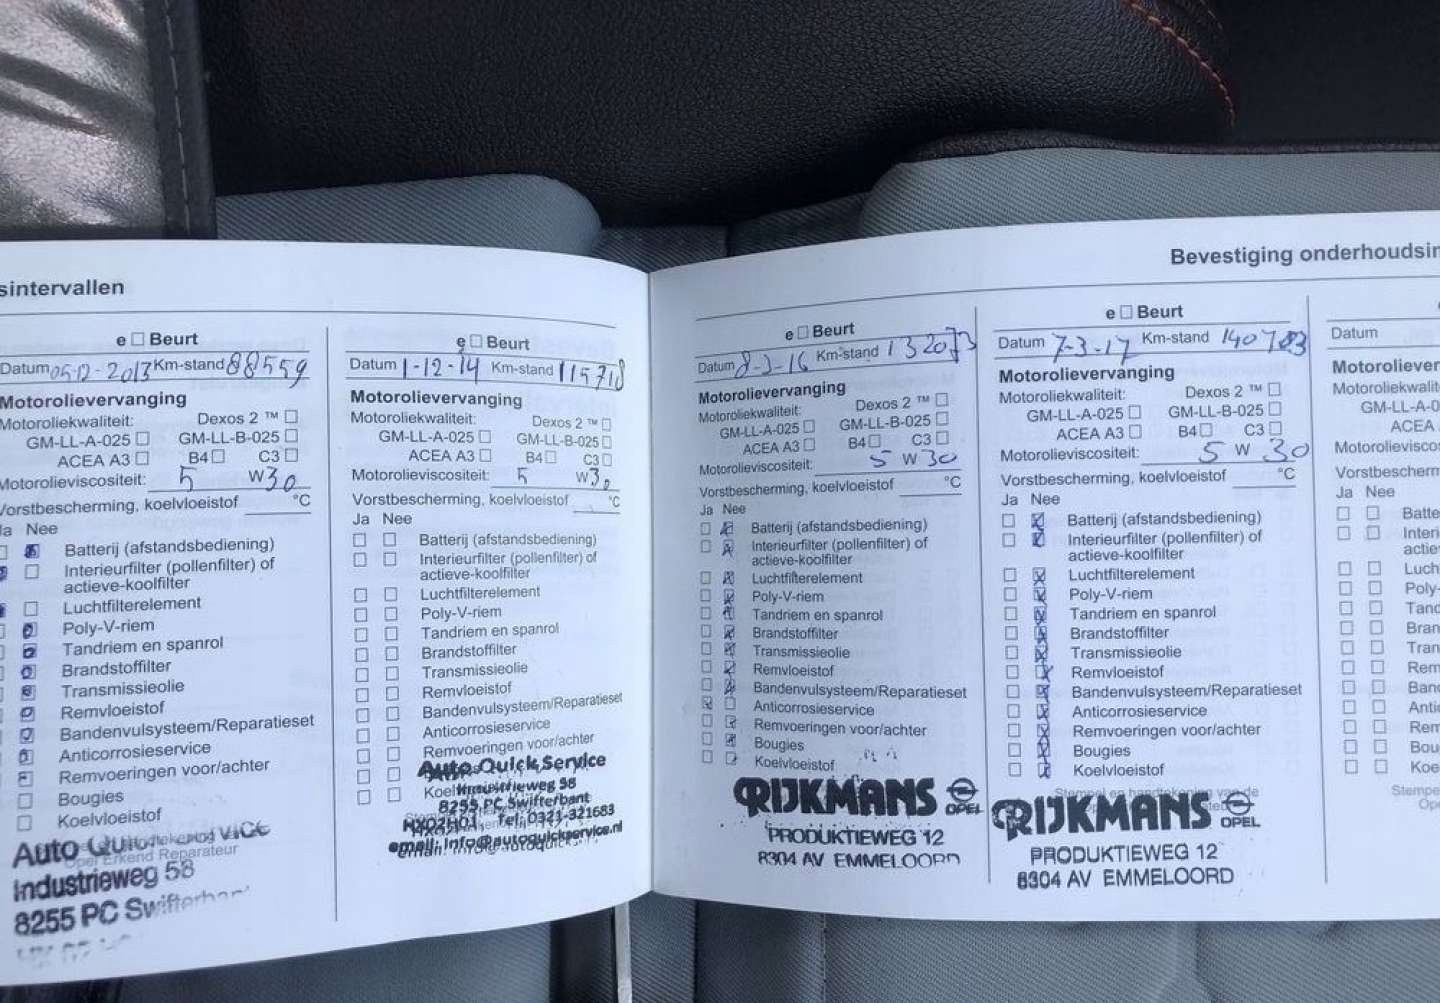 sintervallen
e □ Beurt
Datum 05-12-2013 Km-stand 88559
Motorolievervanging
Motoroliekwaliteit: Dexos 2 ™ □
GM-LL-A-025 □ GM-LL-B-025 □
ACEA A3 □ B4 □ C3 □
Motorolieviscositeit: 5 W 30
Vorstbescherming, koelvloeistof °C
Ja Nee
Batterij (afstandsbediening)
Interieurfilter (pollenfilter) of
actieve-koolfilter
Luchtfilterelement
Poly-V-riem
Tandriem en spanrol
Brandstoffilter
Transmissieolie
Remvloeistof
Bandenvulsysteem/Reparatieset
Anticorrosieservice
Remvoeringen voor/achter
Bougies
Koelvloeistof
Opel Erkend Reparateur
Auto
Industrieweg 58
8255 PC
e □ Beurt
Datum 1-12-14 Km-stand 115718
Motorolievervanging
Motoroliekwaliteit: Dexos 2 ™ □
GM-LL-A-025 □ GM-LL-B-025 □
ACEA A3 □ B4 □ C3 □
Motorolieviscositeit: 5 W 30
Vorstbescherming, koelvloeistof °C
Ja Nee
Batterij (afstandsbediening)
Interieurfilter (pollenfilter) of
actieve-koolfilter
Luchtfilterelement
Poly-V-riem
Tandriem en spanrol
Brandstoffilter
Transmissieolie
Remvloeistof
Bandenvulsysteem/Reparatieset
Anticorrosieservice
Remvoeringen voor/achter
Auto Quick Service
Industrieweg 58
8255 PC Swifterbant
Tel: 0321-321683
email: info@autoquickservice.nl
Bevestiging onderhoudsin
e □ Beurt
Datum 8-3-16 Km-stand 132073
Motorolievervanging
Motoroliekwaliteit: Dexos 2 ™ □
GM-LL-A-025 □ GM-LL-B-025 □
ACEA A3 □ B4 □ C3 □
Motorolieviscositeit: 5 W 30
Vorstbescherming, koelvloeistof °C
Ja Nee
Batterij (afstandsbediening)
Interieurfilter (pollenfilter) of
actieve-koolfilter
Luchtfilterelement
Poly-V-riem
Tandriem en spanrol
Brandstoffilter
Transmissieolie
Remvloeistof
Bandenvulsysteem/Reparatieset
Anticorrosieservice
Remvoeringen voor/achter
Bougies
Koelvloeistof
RIJKMANS OPEL
PRODUKTIEWEG 12
8304 AV EMMELOORD
e □ Beurt
Datum 7-3-17 Km-stand
Motorolievervanging
Motoroliekwaliteit: Dexos 2 ™ □
GM-LL-A-025 □ GM-LL-B-025 □
ACEA A3 □ B4 □ C3 □
Motorolieviscositeit: 5 W 30
Vorstbescherming, koelvloeistof °C
Ja Nee
Batterij (afstandsbediening)
Interieurfilter (pollenfilter) of
actieve-koolfilter
Luchtfilterelement
Poly-V-riem
Tandriem en spanrol
Brandstoffilter
Transmissieolie
Remvloeistof
Bandenvulsysteem/Reparatieset
Anticorrosieservice
Remvoeringen voor/achter
Bougies
Koelvloeistof
Stempel en handtekening van de
RIJKMANS OPEL
PRODUKTIEWEG 12
8304 AV EMMELOORD
Datum
Motoroliever
Motoroliekwalite
GM-LL-A-0
ACEA
Motorolieviscosi
Vorstbescherm
Ja Nee
Batte
Interi
actie
Luch
Poly-
Tand
Bran
Tran
Rem
Band
Antic
Rem
Bou
Koe
Stempe
Ope